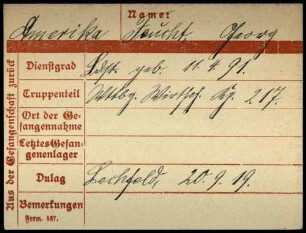 Name:
Amerika Feucht, Georg
Aus der Gefangenschaft zurück
Dienstgrad Ldst. geb. 11.4.91.
Truppenteil Wttbg. Wirtsch. Kp. 217.
Ort der Ge-
fangennahme
Letztes Gefan-
genenlager
Dulag Lechfeld, 20.9.19.
Bemerkungen
Form. 587.